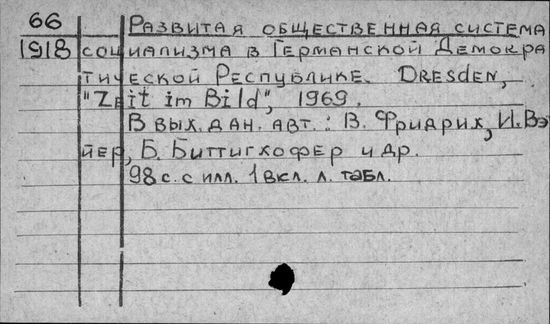 66 Развитая общественная система
1918 социализма в Германской Демокра
тической Республике. Dresden,
"Zeit im Bild", 1969.
В вых. дан. авт.: В. Фридрих, И. Вэ
йер, Б. Биттигхофер и др.
98 с. с илл. 1 вкл. л. табл.